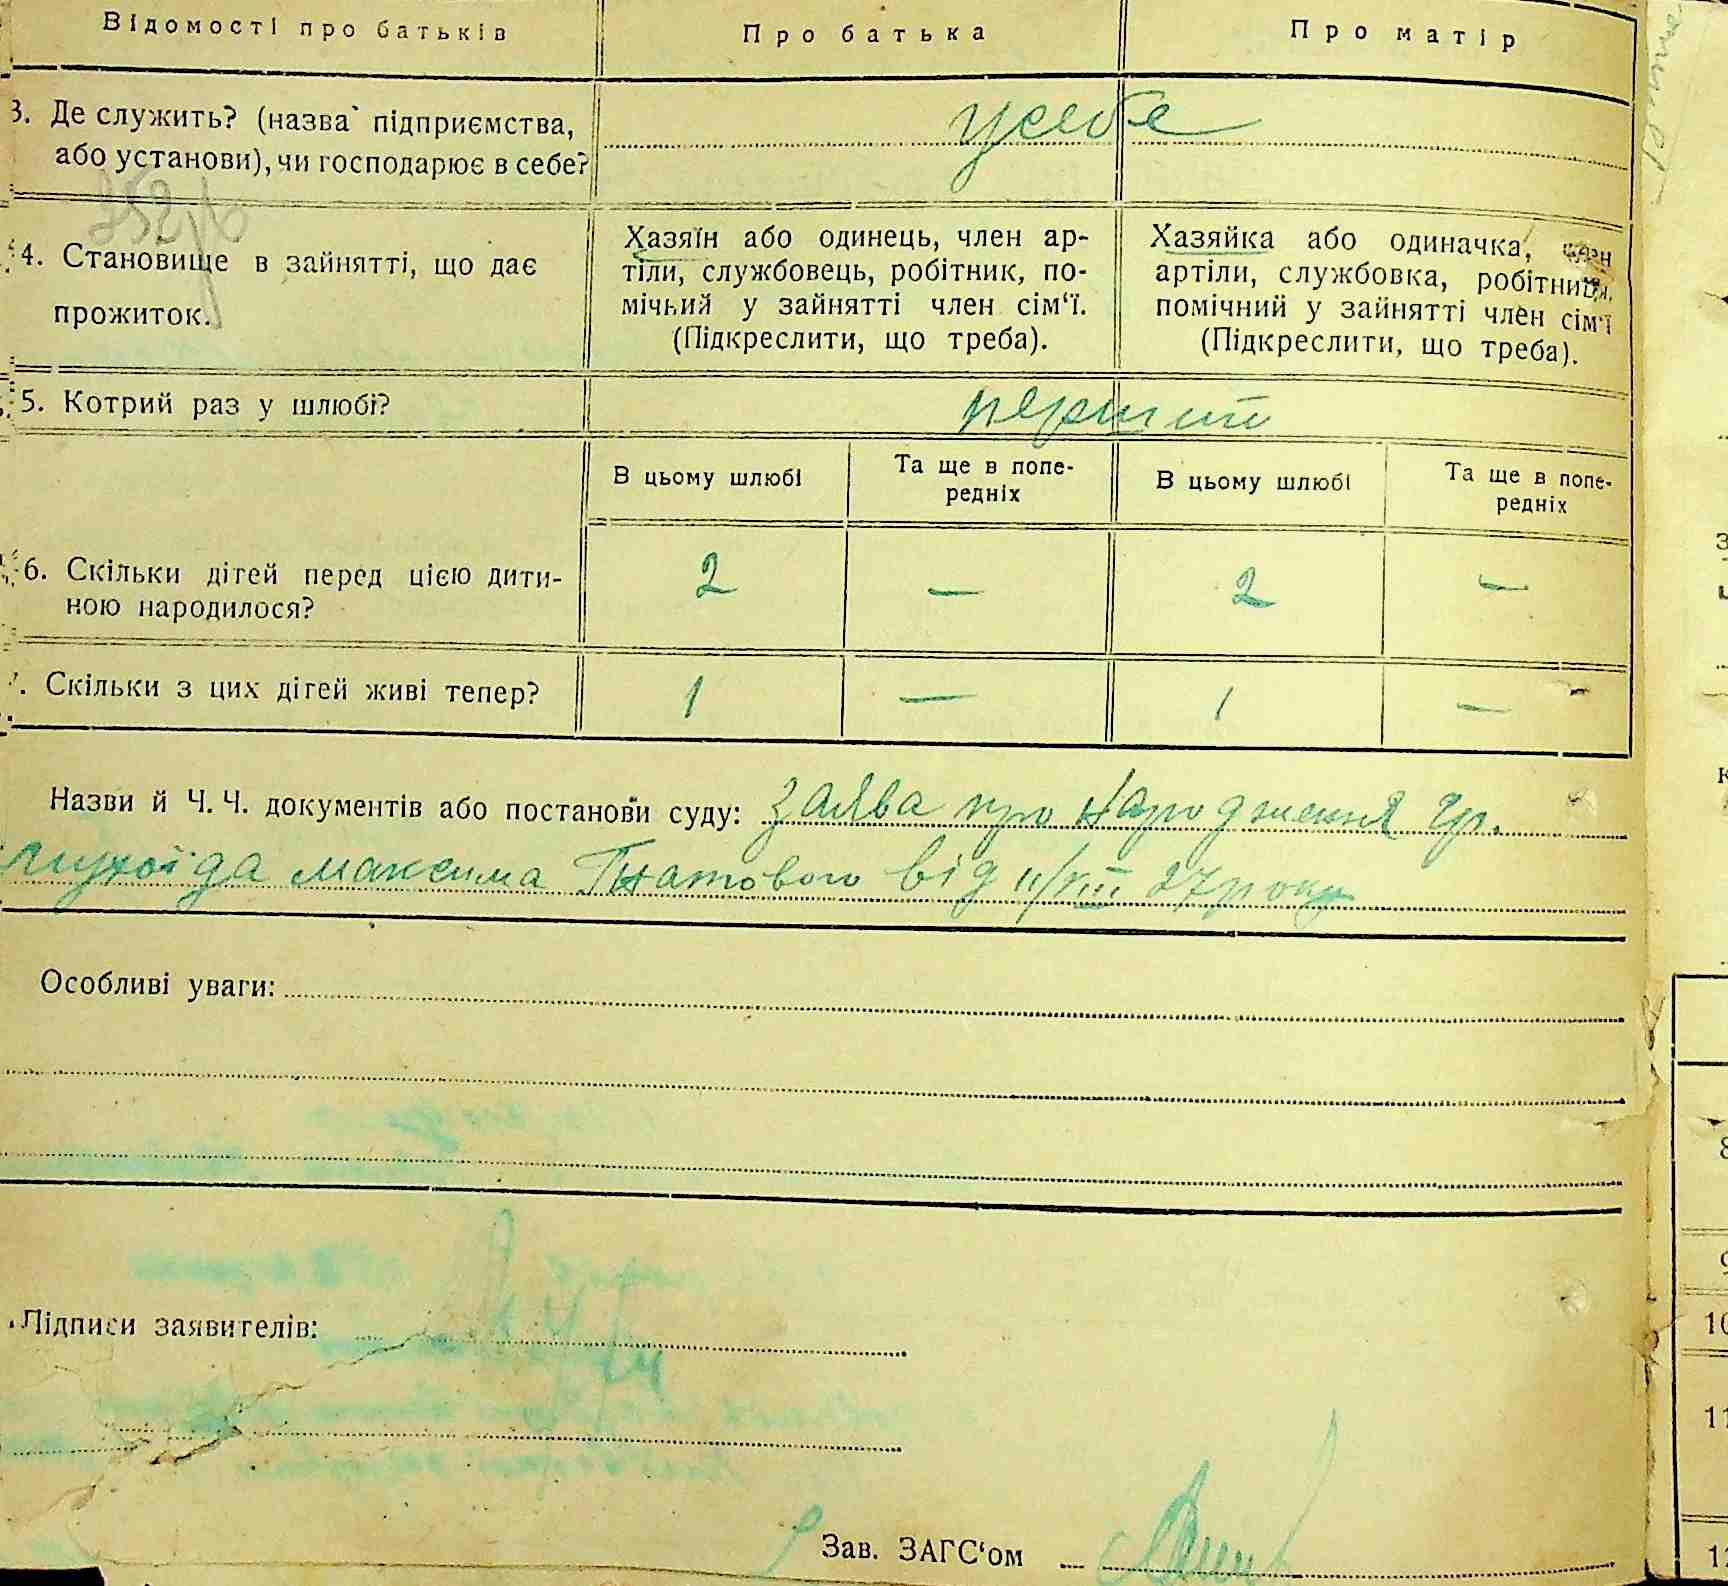 Відомості про батьків
Про батька
Про матір
3. Де служить? (назва підприємства,
або установи), чи господарює в себе?
у себе
4. Становище в зайнятті, що дає
прожиток.
Хазяїн або одинець, член ар-
тіли, службовець, робітник, по-
мічний у зайнятті член сім'ї.
(Підкреслити, що треба).
Хазяйка або одиначка, член
артіли, службовка, робітниця,
помічний у зайнятті член сім'ї
(Підкреслити, що треба).
5. Котрий раз у шлюбі?
перший
В цьому шлюбі
Та ще в попе-
редніх
В цьому шлюбі
Та ще в попе-
редніх
6. Скільки дітей перед цією дити-
ною народилося?
2 — 2 —
7. Скільки з цих дітей живі тепер?
1 — 1 —
Назви й Ч. Ч. документів або постанови суду: заява про народження гр.
Максима Гнатового від 11/VIII 27 року
Особливі уваги:
Підписи заявителів:
Зав. ЗАГС'ом
8
9
10
11
12